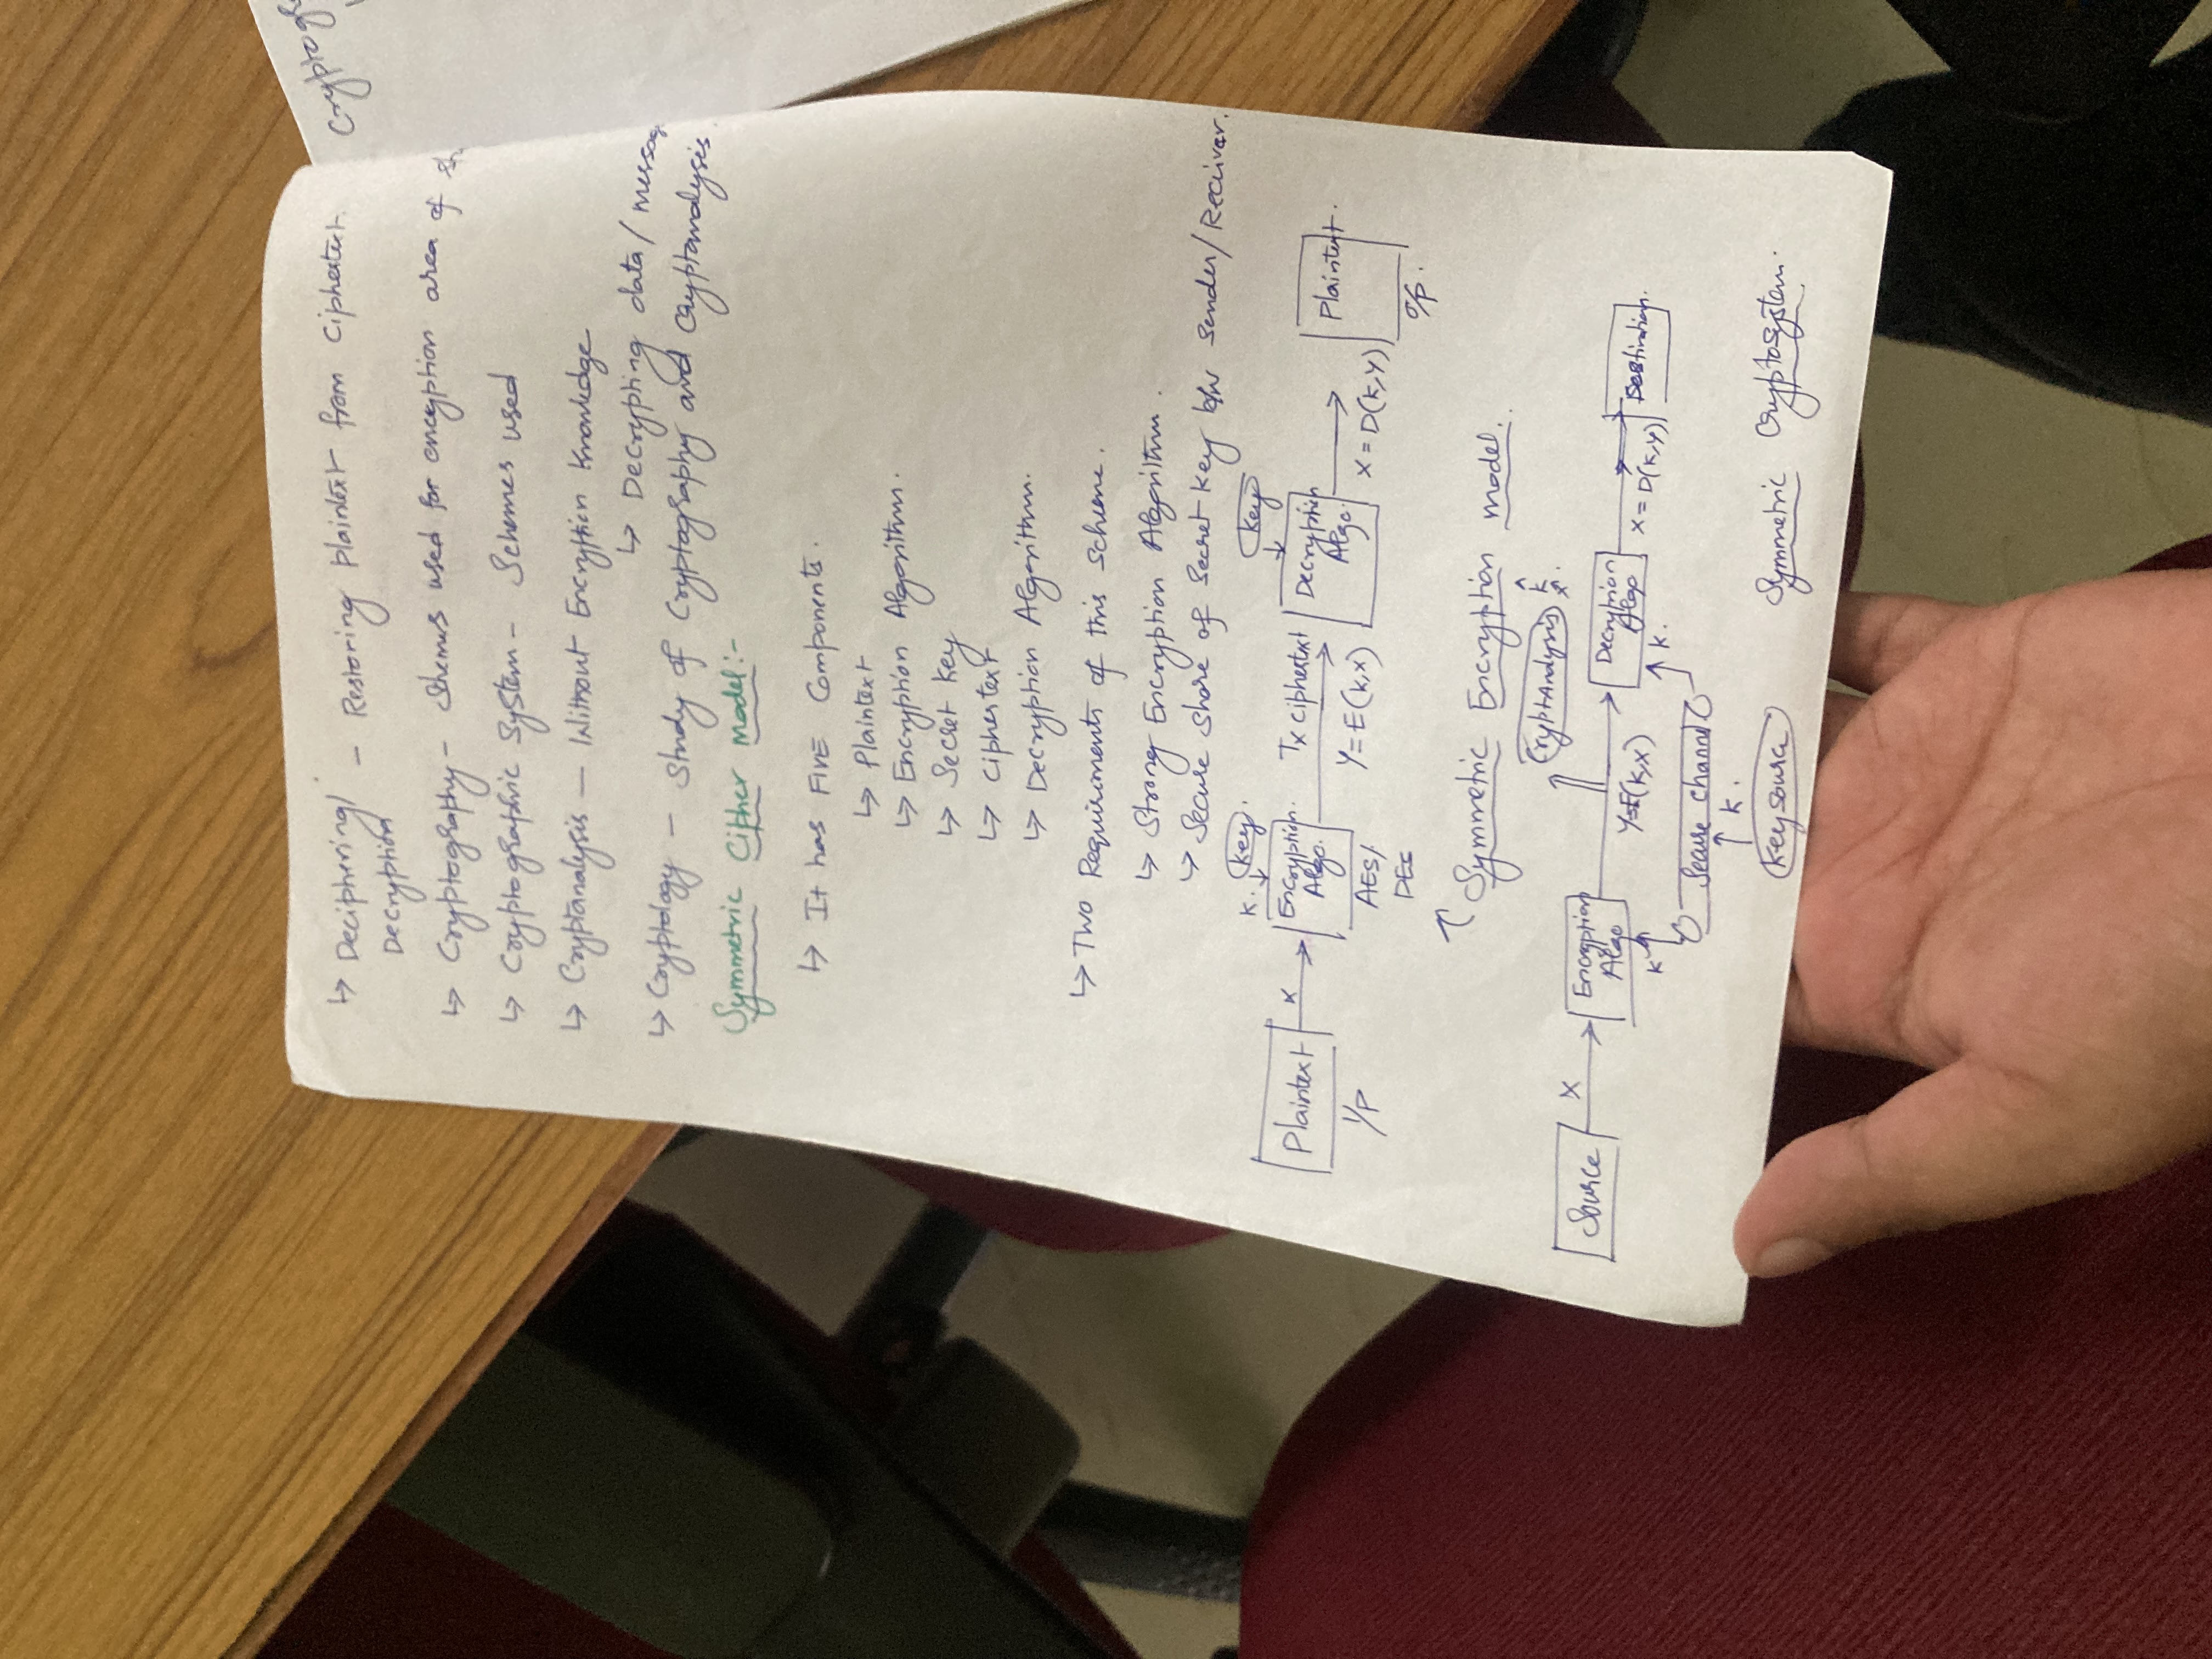 ↳ Deciphering/ – Restoring plaintext from Ciphertext.
Decryption
↳ Cryptography – Schemes used for encryption area of
↳ Cryptographic System – Schemes used
↳ Cryptanalysis – Without Encryption Knowledge
↳ Decrypting data/
↳ Cryptology – Study of Cryptography and Cryptanalysis
Symmetric Cipher Model:-
↳ It has FIVE Components.
↳ Plaintext
↳ Encryption Algorithm.
↳ Secret key
↳ Ciphertext
↳ Decryption Algorithm.
↳ Two Requirements of this Scheme.
↳ Strong Encryption Algorithm.
↳ Secure Share of Secret Key b/w Sender/Receiver.
K. Key.
Key
Plaintext
X
Encryption
Algo.
Tx ciphertext
Y=E(K,X)
Decryption
Algo.
X=D(K,Y)
Plaintext.
I/P
AES/
DES
O/P.
Symmetric Encryption model.
CryptAnalysis
K̂
X̂.
Source
X
Encryption
Algo
Y=E(K,X)
Decryption
Algo
X=D(K,Y)
Destination.
K
K.
Secure channel
K.
Key source
Symmetric Cryptosystem.